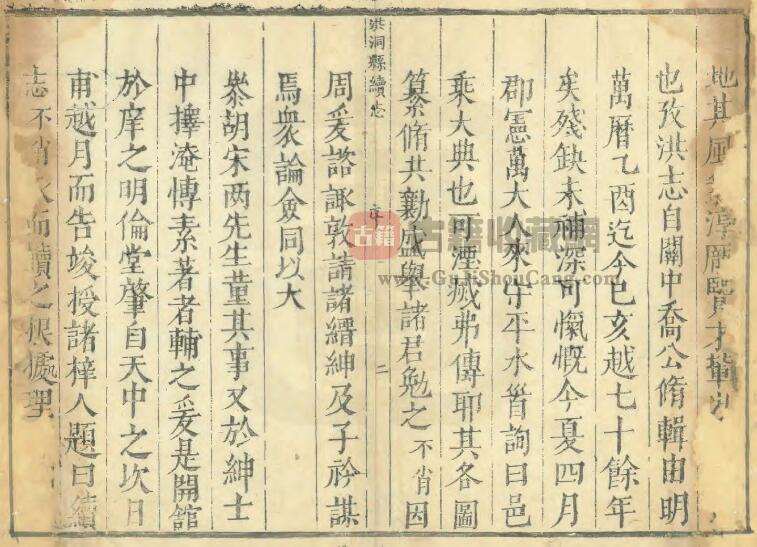 地其風淳龐賢才輩出
也攷洪志自關中喬公脩輯由明
萬曆乙酉迄今己亥越七十餘年
矣殘缺未補深可愾慨今夏四月
郡憲萬大人來守平水首詢曰邑
乘大典也可湮滅弗傳耶其各圖
纂脩共勷盛舉諸君勉之不肖因
洪洞縣續志
序
二
周爰諮諏敦請諸縉紳及子衿謀
焉衆論僉同以大
叅胡宋两先生董其事又於紳士
中擇淹愽素著者輔之爰是開舘
於庠之明倫堂肇自天中之次日
甫越月而告竣授諸梓人題曰續
志不肖而讀之根據理
古籍
古籍收藏網
www.GuJiShouCang.com